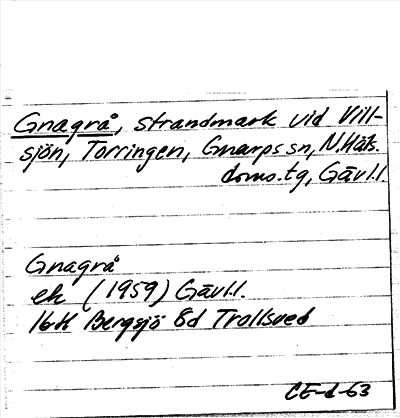 Gnagrå, strandmark vid Vill-
sjön, Torringen, Gnarps sn, N. Häls.
doms. tg, Gävl.l.
Gnagrå
ek (1959) Gävl.l.
16H Bergsjö 8d Trollsved
CE-d-63